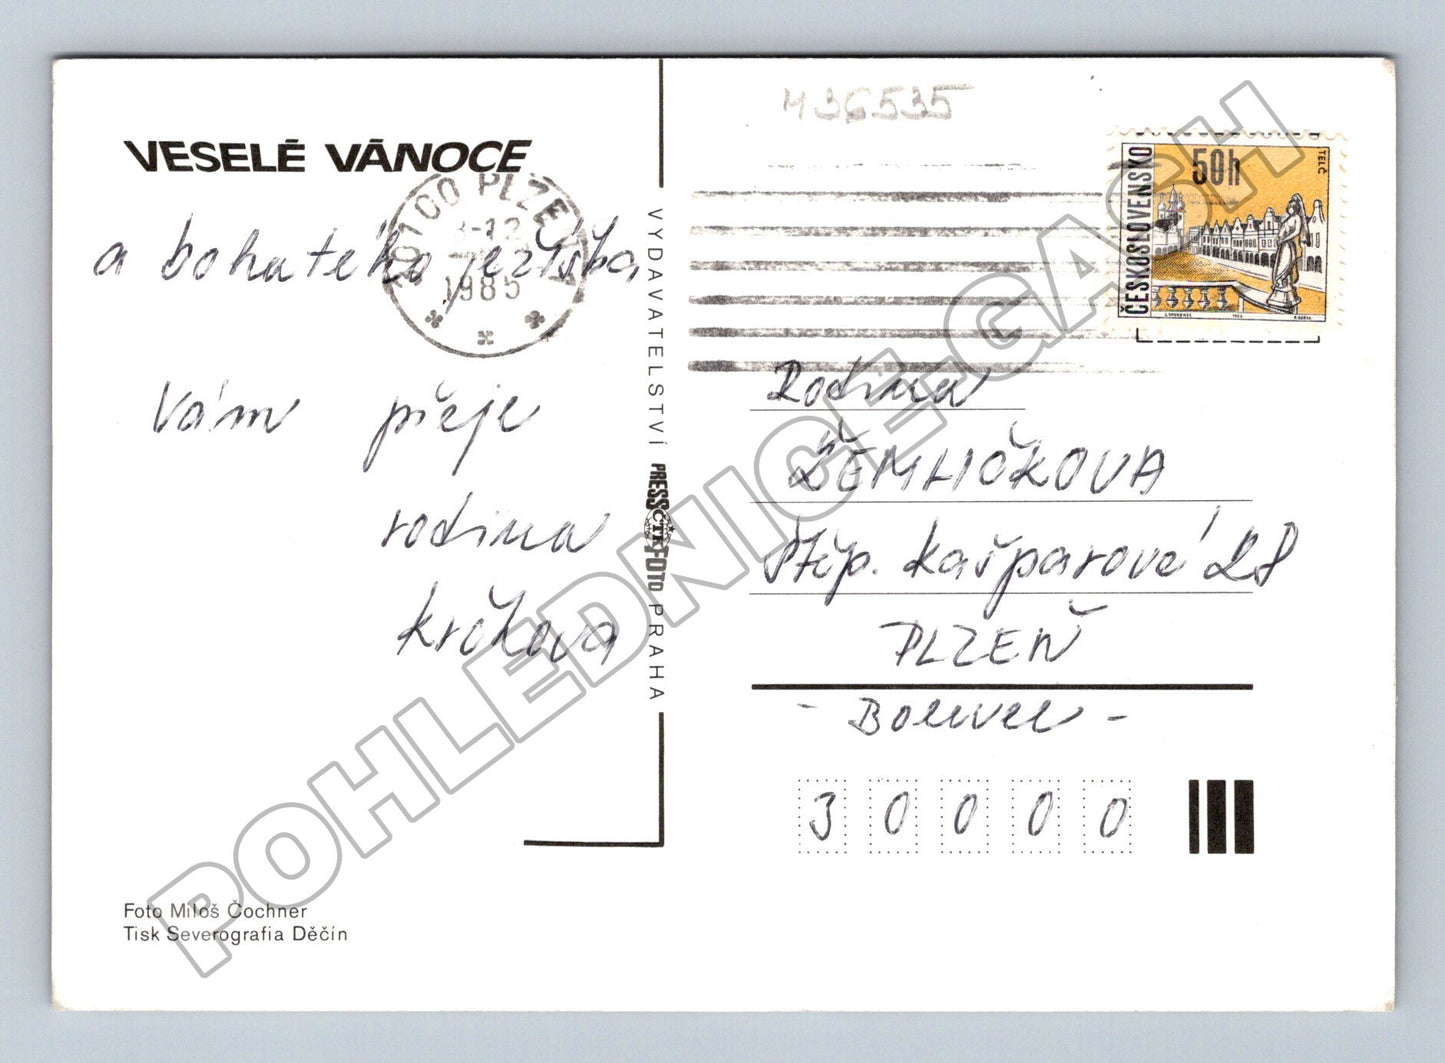 VESELÉ VÁNOCE
a bohatého ježíška
Vám přeje
rodina
krčkova
Foto Miloš Čochner
Tisk Severografia Děčín
301 00 PLZEŇ 1
1985
VYDAVATELSTVÍ PRESSFOTO PRAHA
ČTK
M36535
ČESKOSLOVENSKO
50h
TELČ
Rodina
ŽEMLIČKOVA
Štěp. Kašparové 28
PLZEŇ
- Bolevec -
30000
POHLEDNICE-GASH